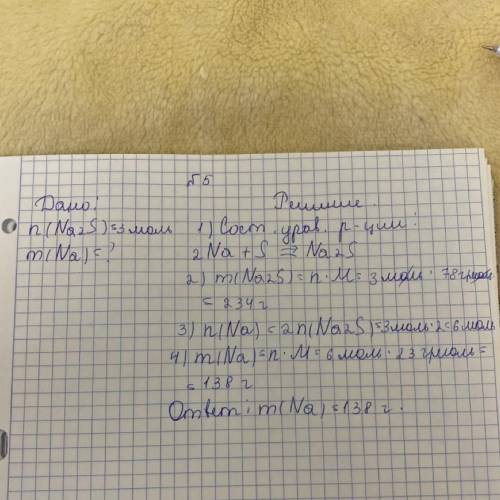 № 5
Дано:
Решение.
n(Na2S)=3моль
1) Сост. урав. р-ции:
m(Na)=?
2Na+S ⇉ Na2S
2) m(Na2S)=n·M=3моль·78г/моль
=234 г
3) n(Na)=2n(Na2S)=3моль·2=6моль
4) m(Na)=n·M=6моль·23г/моль=
=138 г
Ответ: m(Na)=138 г.